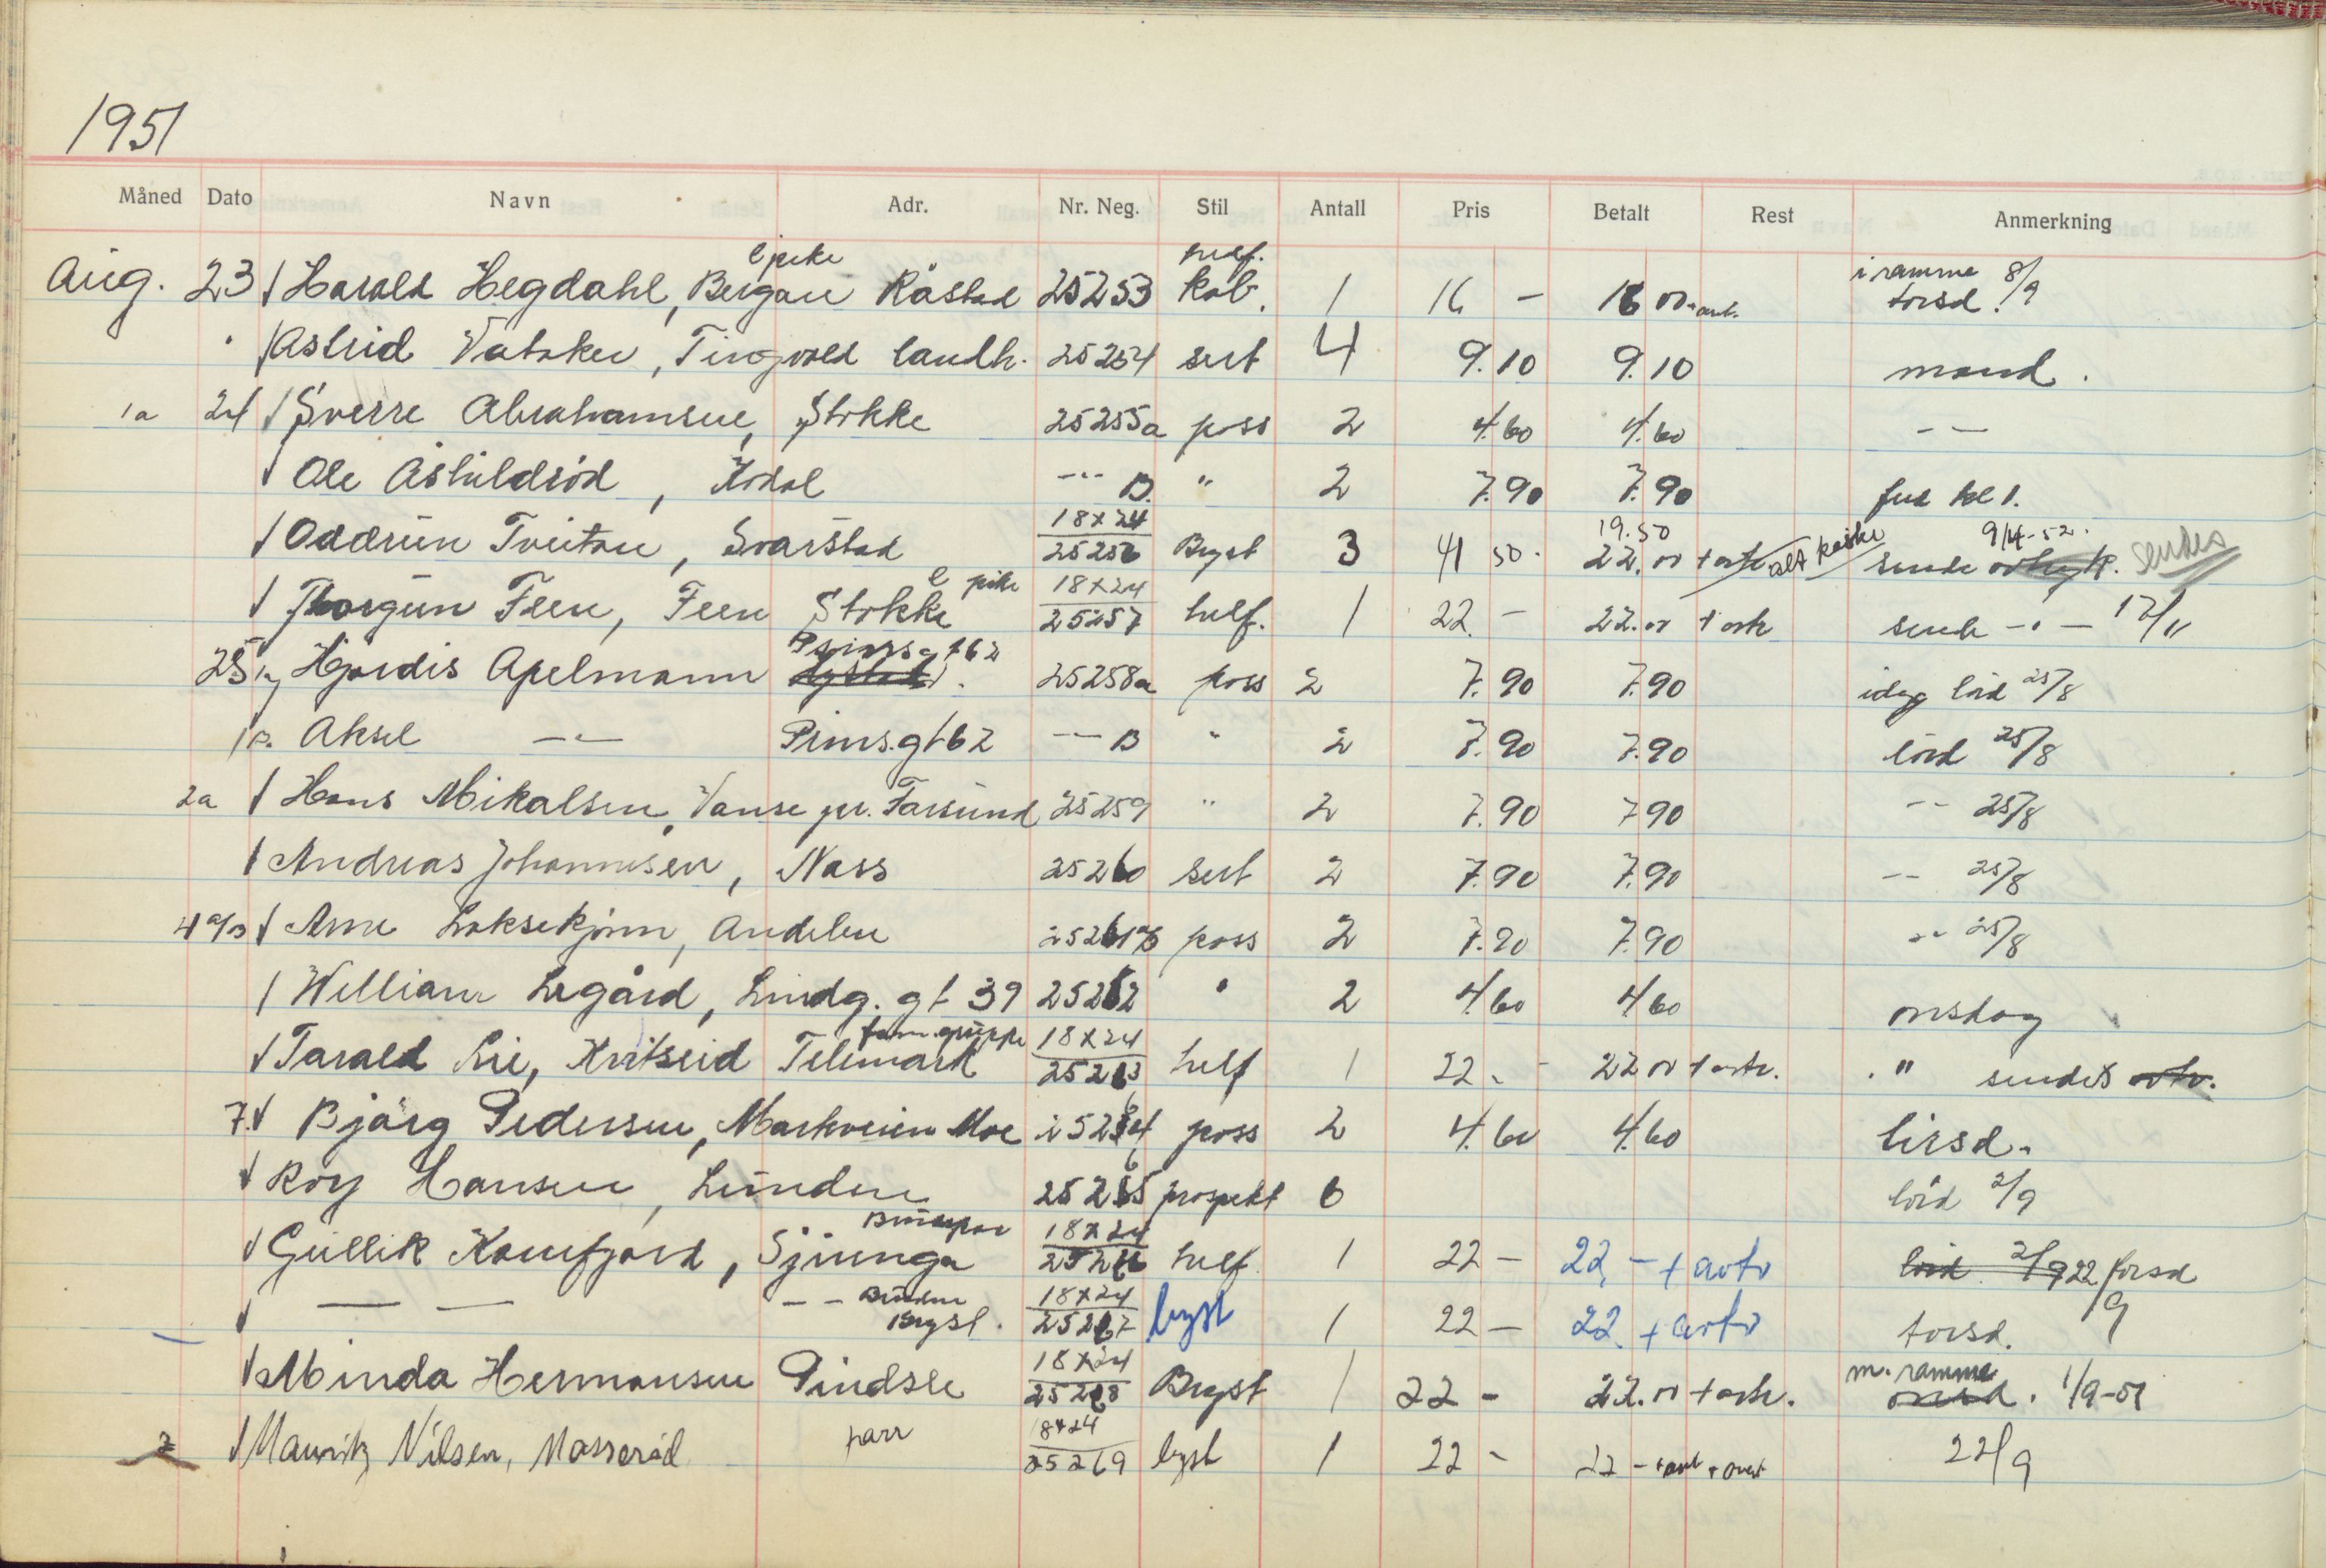 1951
Måned Dato Navn Adr. Nr. Neg. Stil Antall Pris Betalt Rest Anmerkning
Aug. 23 Harald Hegdahl, Bergan Råstad 25253 helf. kab. 1 16 - 16 00 i ramme torsd. 8/9
Astrid, Tingvold landh. 25254 sert 4 9.10 9.10 mand.
1a 24 Sverre Abrahamsen, Stokke 25255a pass 2 4.60 4.60 - -
Ole Åshildröd, Kodal --- B. " 2 7.90 7.90 kl 1.
Oddrün Tveitan, Svarstad 18x24 25256 Bryst 3 41 50 - 19.50 22.00 sende 9/4-52. sendes
Thorgün Feen, Feen Stokke pike 18x24 25257 helf. 1 22. - 22.00 sende - " - 12/11
25 Hjördis Apelmann Prinsg 62 25258a pass 2 7.90 7.90 idag lörd 25/8
1B. Aksel - " - Prins.gt 62 --- B " 2 7.90 7.90 lörd 25/8
2a Hans Mikalsen, Vanse pr. Farsünd 25259 " 2 7.90 7 90 - - 25/8
Andreas Johannesen, Nass 25260 sert 2 7.90 7.90 - - 25/8
4 a/B Arne, Andebu 25261 pass 2 7.90 7.90 - - 25/8
William Legård, Lindg. gt 39 25262 " 2 4.60 4.60 onsdag
Tarald Lie, Kvitseid Telemark fam.grüppe 18x24 25263 helf 1 22. - 22 00 " sendes
7. Bjärg Pedersen, Markveien Moe 25264 pass 2 4.60 4.60 tirsd.
Roy Hansen, Lünden 25265 prospekt 6 lörd 2/9
Güllik, 18x24 25266 helf. 1 22 - 22, - + avtr lörd 2/9 22/9 torsd
— — - - Bryst. 18x24 25267 bryst 1 22 - 22 + avtr torsd.
Minda Hermansen Pindsle 18x24 25268 Bryst 1 22 - 22.00 m. ramme onsd. 1/9-51
Mauritz Nilsen, Masseröd parr 18x24 25269 bryst 1 22 - 22 - 22/9